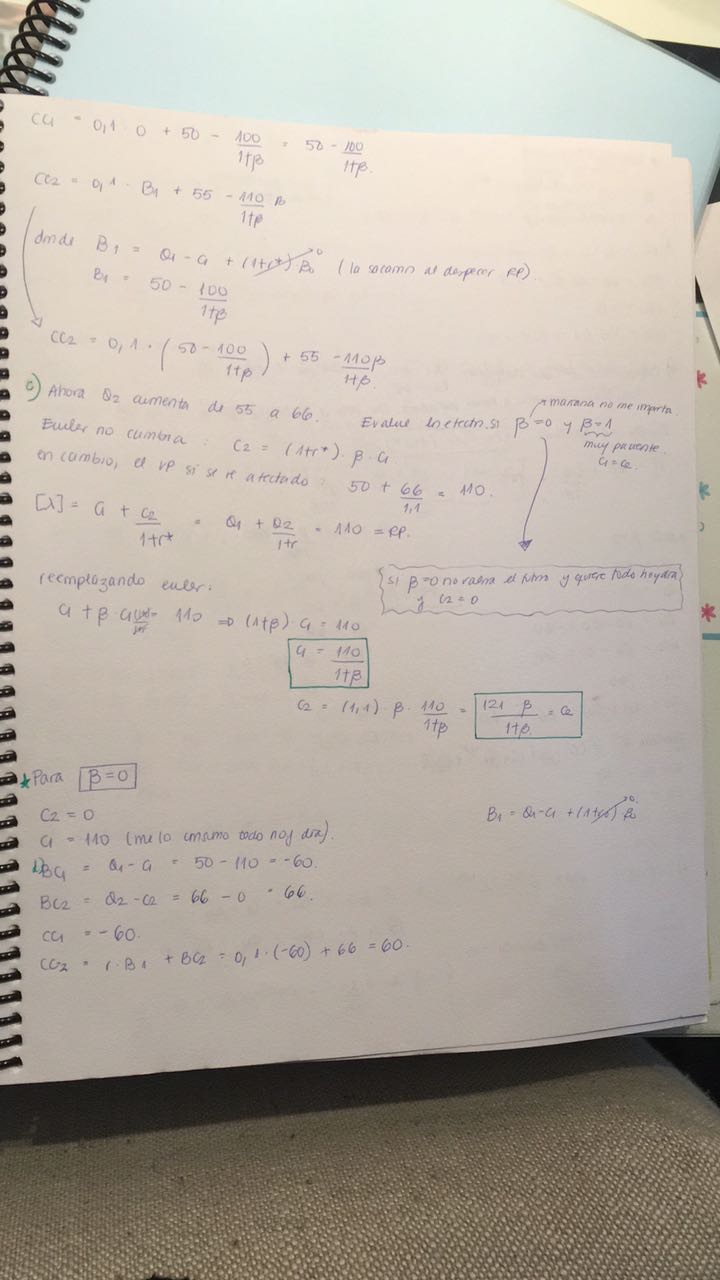 CC1 = 0,1 · 0 + 50 - 100/1+β = 50 - 100/1+β.
CC2 = 0,1 · B1 + 55 - 110/1+β β
donde B1 = Q1 - C1 + (1+r*) B0 → 0 (lo sacamos al despejar RP).
B1 = 50 - 100/1+β
CC2 = 0,1 · (50 - 100/1+β) + 55 - 110β/1+β.
c) Ahora Q2 aumenta de 55 a 66. Evalue efectos si β=0 y β=1
mañana no me importa.
muy paciente.
C1 = C2.
Euler no cambia : C2 = (1+r*) · β · C1
en cambio, el VP si se ve afectado : 50 + 66/1,1 = 110.
[λ] = C1 + C2/1+r* = Q1 + Q2/1+r = 110 = RP.
si β=0 no valora el futuro y quiere todo hoy día
y C2 = 0
reemplazando euler:
C1 + β · C1 = 110 ⇒ (1+β) · C1 = 110
C1 = 110/1+β
C2 = (1,1) · β · 110/1+β = 121 · β/1+β = C2
* Para β=0
C2 = 0
B1 = Q1 - C1 + (1+r0) B0 → 0.
C1 = 110 (me lo consumo todo hoy día).
BC1 = Q1 - C1 = 50 - 110 = -60.
BC2 = Q2 - C2 = 66 - 0 = 66.
CC1 = -60.
CC2 = r · B1 + BC2 = 0,1 · (-60) + 66 = 60.